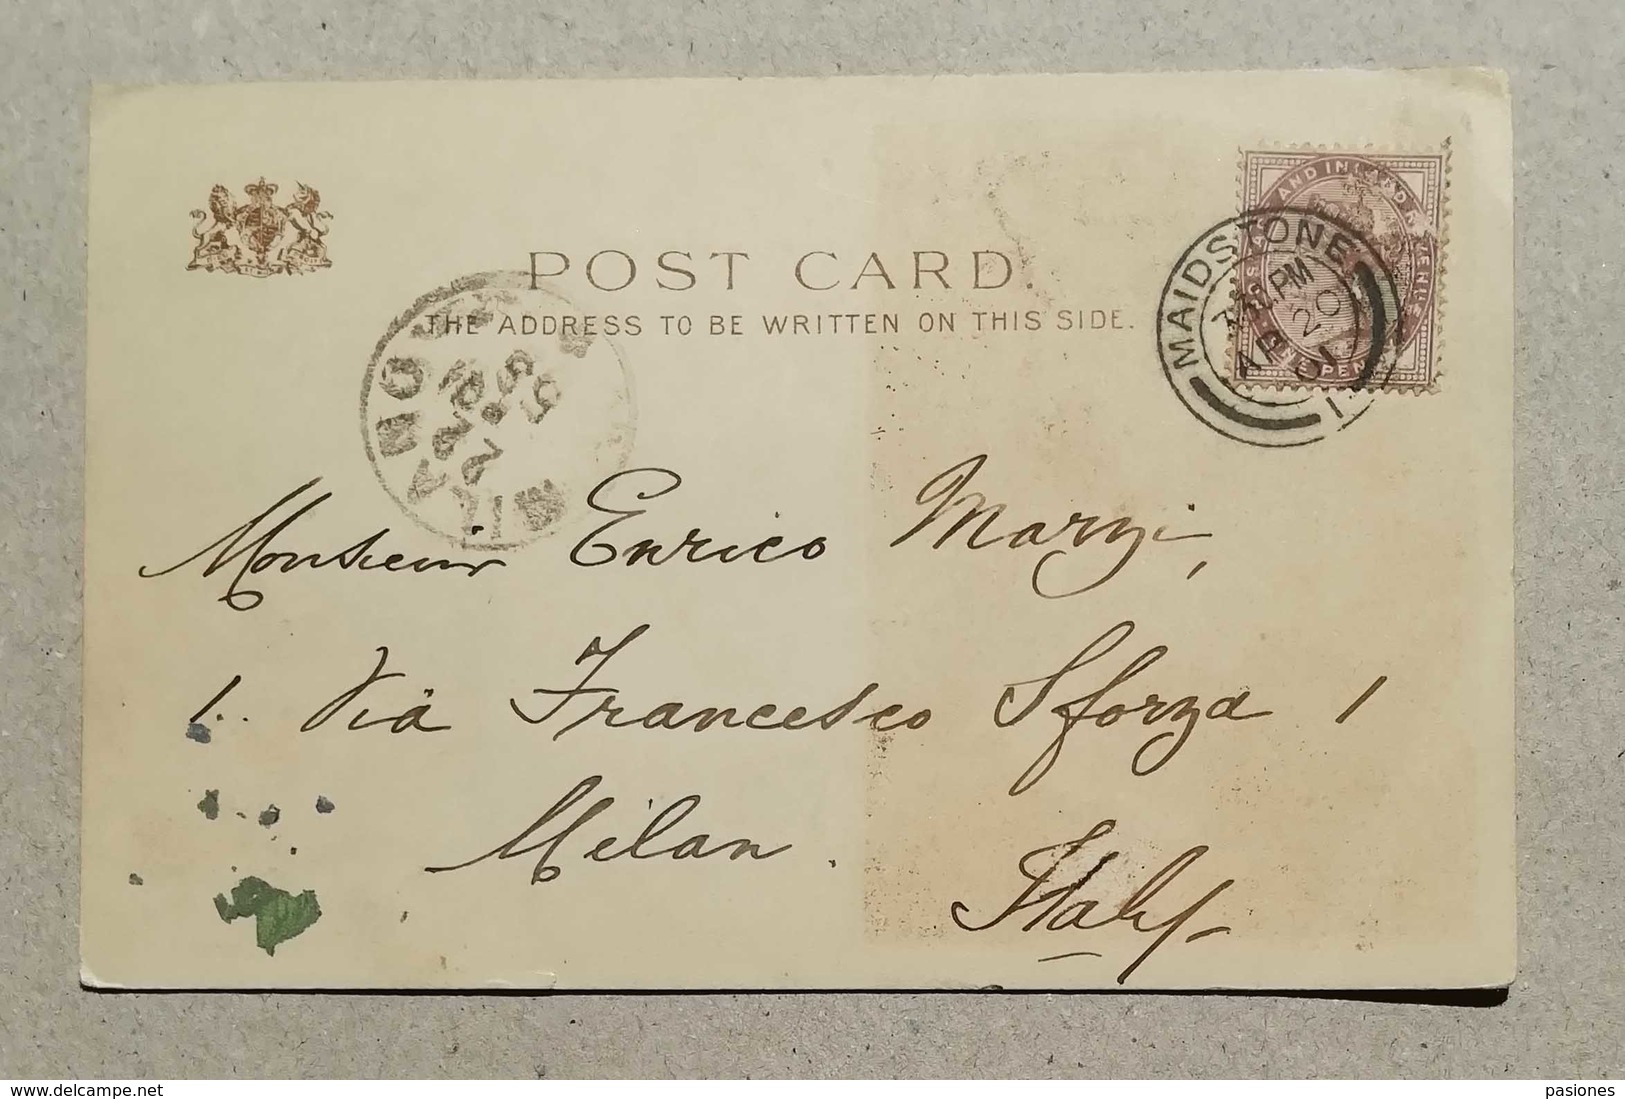 POST CARD.
THE ADDRESS TO BE WRITTEN ON THIS SIDE.
AND INLAND
PENNY
MAIDSTONE
PM
AP 20
01
1
MILANO
Monsieur Enrico Marzi,
1.. Via Francesco Sforza 1
Milan.
Italy
www.delcampe.net
pasiones